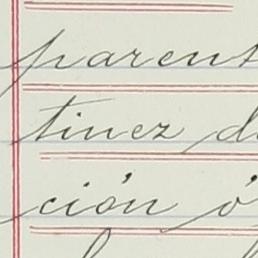 parent
tinez d
ción ó